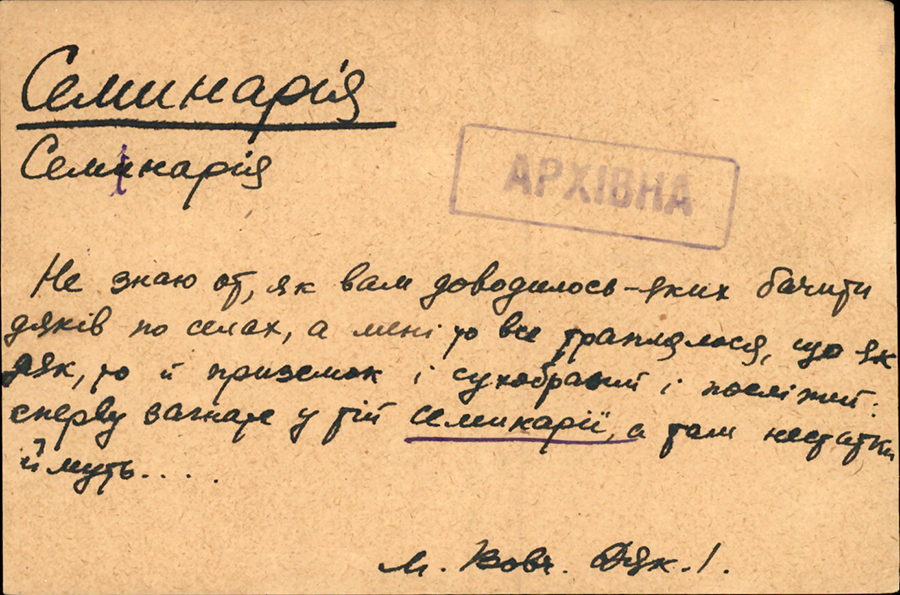 Семинарія
Семінарія
АРХІВНА
Не знаю от, як вам доводилось-яких бачити
дяків по селах, а мені то все траплялося, що як
дяк, то й приземок і сухобравий і
сперву загнате у тій семинарії, а там нестатки
й муть.....
М. Вовч. Дяк. 1.